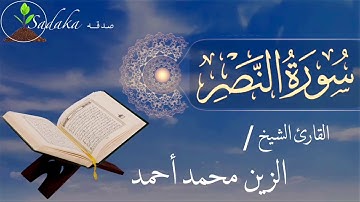 Sadaka صدقه
سُورَةُ النَّصْرِ
القارئ الشيخ /
الزين محمد أحمد